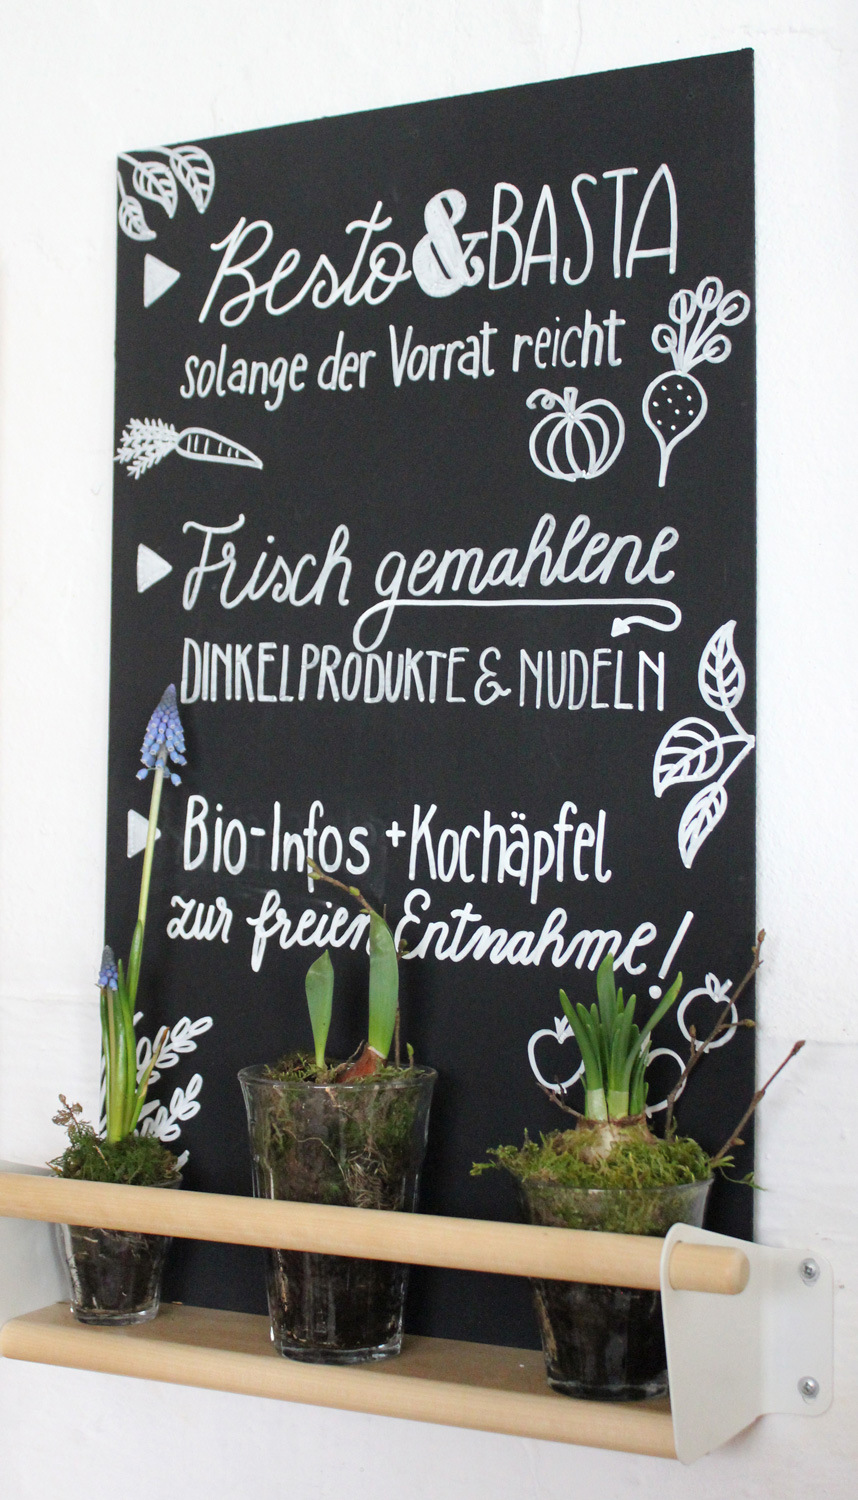 Besto & BASTA
solange der Vorrat reicht
Frisch gemahlene
DINKELPRODUKTE & NUDELN
Bio-Infos + Kochäpfel
zur freien Entnahme!